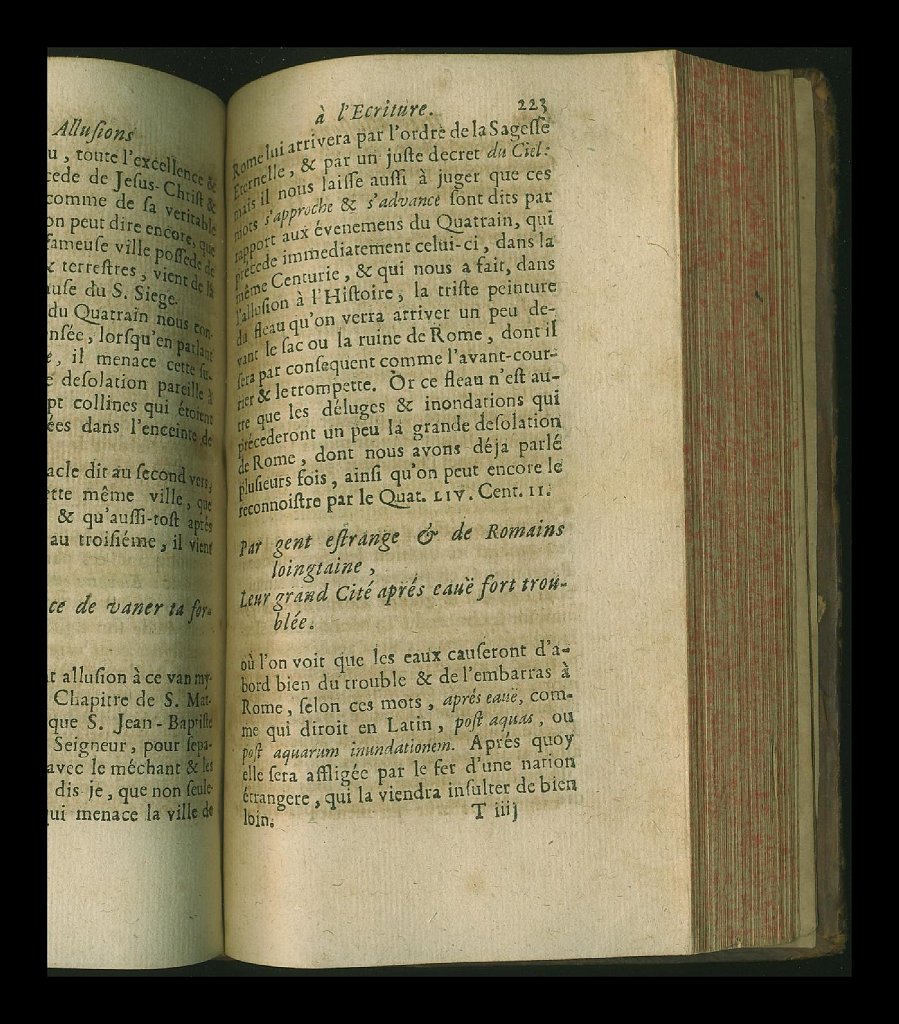 Allusions
u, toute l'excellence &
cede de Jesus-Christ &
comme de sa veritable
on peut dire encore, que
fameuse ville possede de
x terrestres, vient de là
use du S. Siege.
du Quatrain nous con-
nsée, lorsqu'en parlant
, il menace cette su-
e desolation pareille à
pt collines qui étoient
ées dans l'enceinte de
acle dit au second vers,
ette même ville, que
& qu'aussi-tost aprés
au troisiéme, il vient
ce de vaner ta for-
t allusion à ce van my-
Chapitre de S. Mat-
que S. Jean-Baptiste
Seigneur, pour sepa-
avec le méchant & les
dis je, que non seule-
ui menace la ville de
à l'Ecriture. 223
Rome lui arrivera par l'ordre de la Sagesse
Eternelle, & par un juste decret du Ciel:
mais il nous laisse aussi à juger que ces
mots s'approche & s'advance sont dits par
rapport aux évenemens du Quatrain, qui
précede immediatement celui-ci, dans la
même Centurie, & qui nous a fait, dans
l'allusion à l'Histoire, la triste peinture
du fleau qu'on verra arriver un peu de-
vant le sac ou la ruine de Rome, dont il
sera par consequent comme l'avant-cour-
rier & le trompette. Or ce fleau n'est au-
tre que les déluges & inondations qui
précederont un peu la grande desolation
de Rome, dont nous avons déja parlé
plusieurs fois, ainsi qu'on peut encore le
reconnoistre par le Quat. LIV. Cent. II.
Par gent estrange & de Romains
loingtaine,
Leur grand Cité aprés eauë fort trou-
blée.
où l'on voit que les eaux causeront d'a-
bord bien du trouble & de l'embarras à
Rome, selon ces mots, aprés eauë, com-
me qui diroit en Latin, post aquas, ou
post aquarum inundationem. Aprés quoy
elle sera affligée par le fer d'une nation
étrangere, qui la viendra insulter de bien
loin.
T iiij